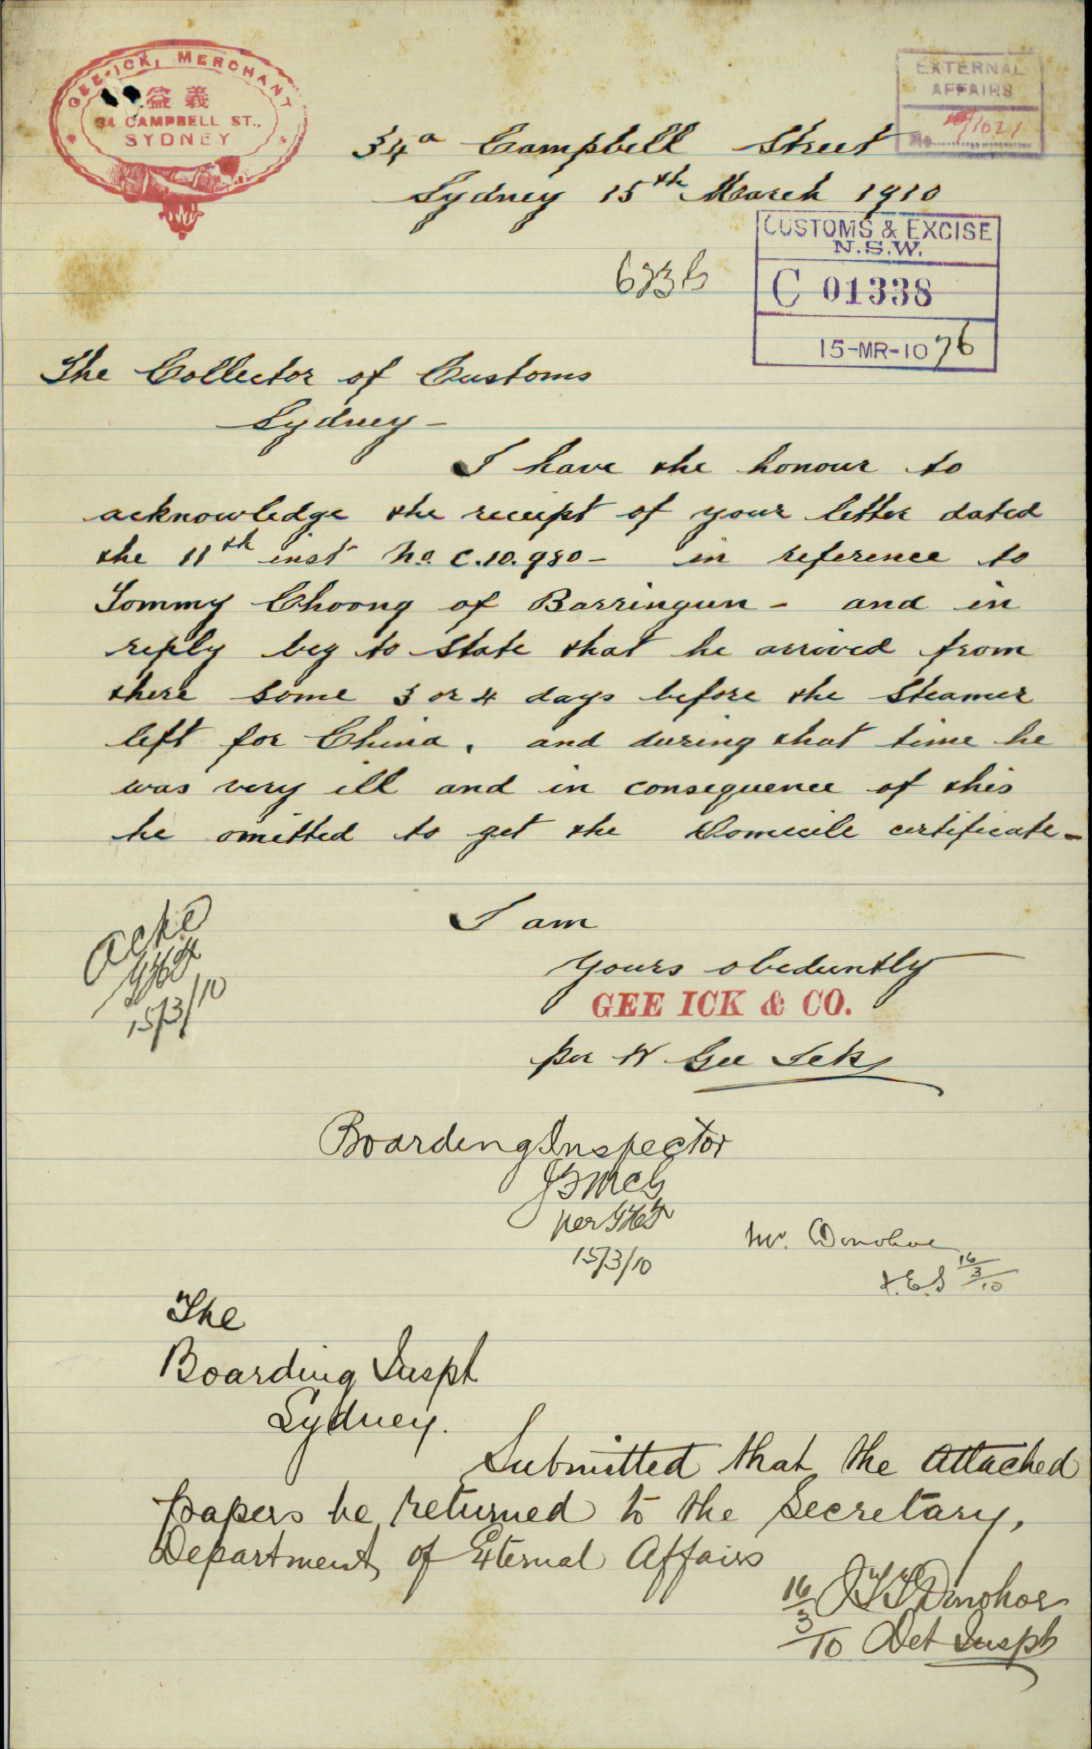 GEE-ICK, MERCHANT
益 義
34 CAMPBELL ST.,
SYDNEY
EXTERNAL
AFFAIRS
No.
34a Campbell Street
Sydney 15th March 1910
CUSTOMS & EXCISE
N.S.W.
C 01338
15-MR-10 76
The Collector of Customs
Sydney -
I have the honour to
acknowledge the receipt of your letter dated
the 11th inst No. C.10.980 - in reference to
Tommy Choong of Barringun - and in
reply beg to state that he arrived from
there some 3 or 4 days before the steamer
left for China, and during that time he
was very ill and in consequence of this
he omitted to get the Domicile certificate -
I am
Yours obediently
GEE ICK & CO.
per W Gee Ick
15/3/10
Boarding Inspector
per
15/3/10
Mr. Donohoe
16/3/10
The
Boarding Inspt
Sydney.
Submitted that the attached
papers be returned to the Secretary,
Department of External Affairs
16/3/10 Donohoe
Det Inspt